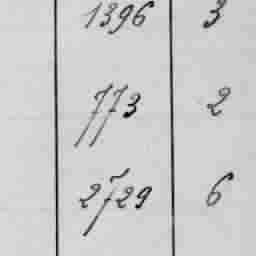 1396 3
773 2
2729 6